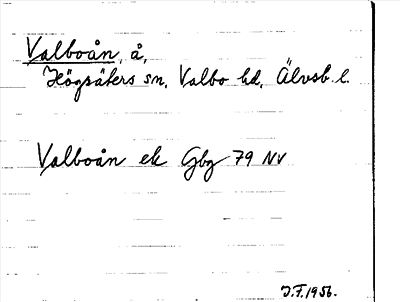 Valboån, å,
Högsäters sn, Valbo hd, Älvsb. l.
Valboån ek Gbg 79 NV
J.F. 1956.